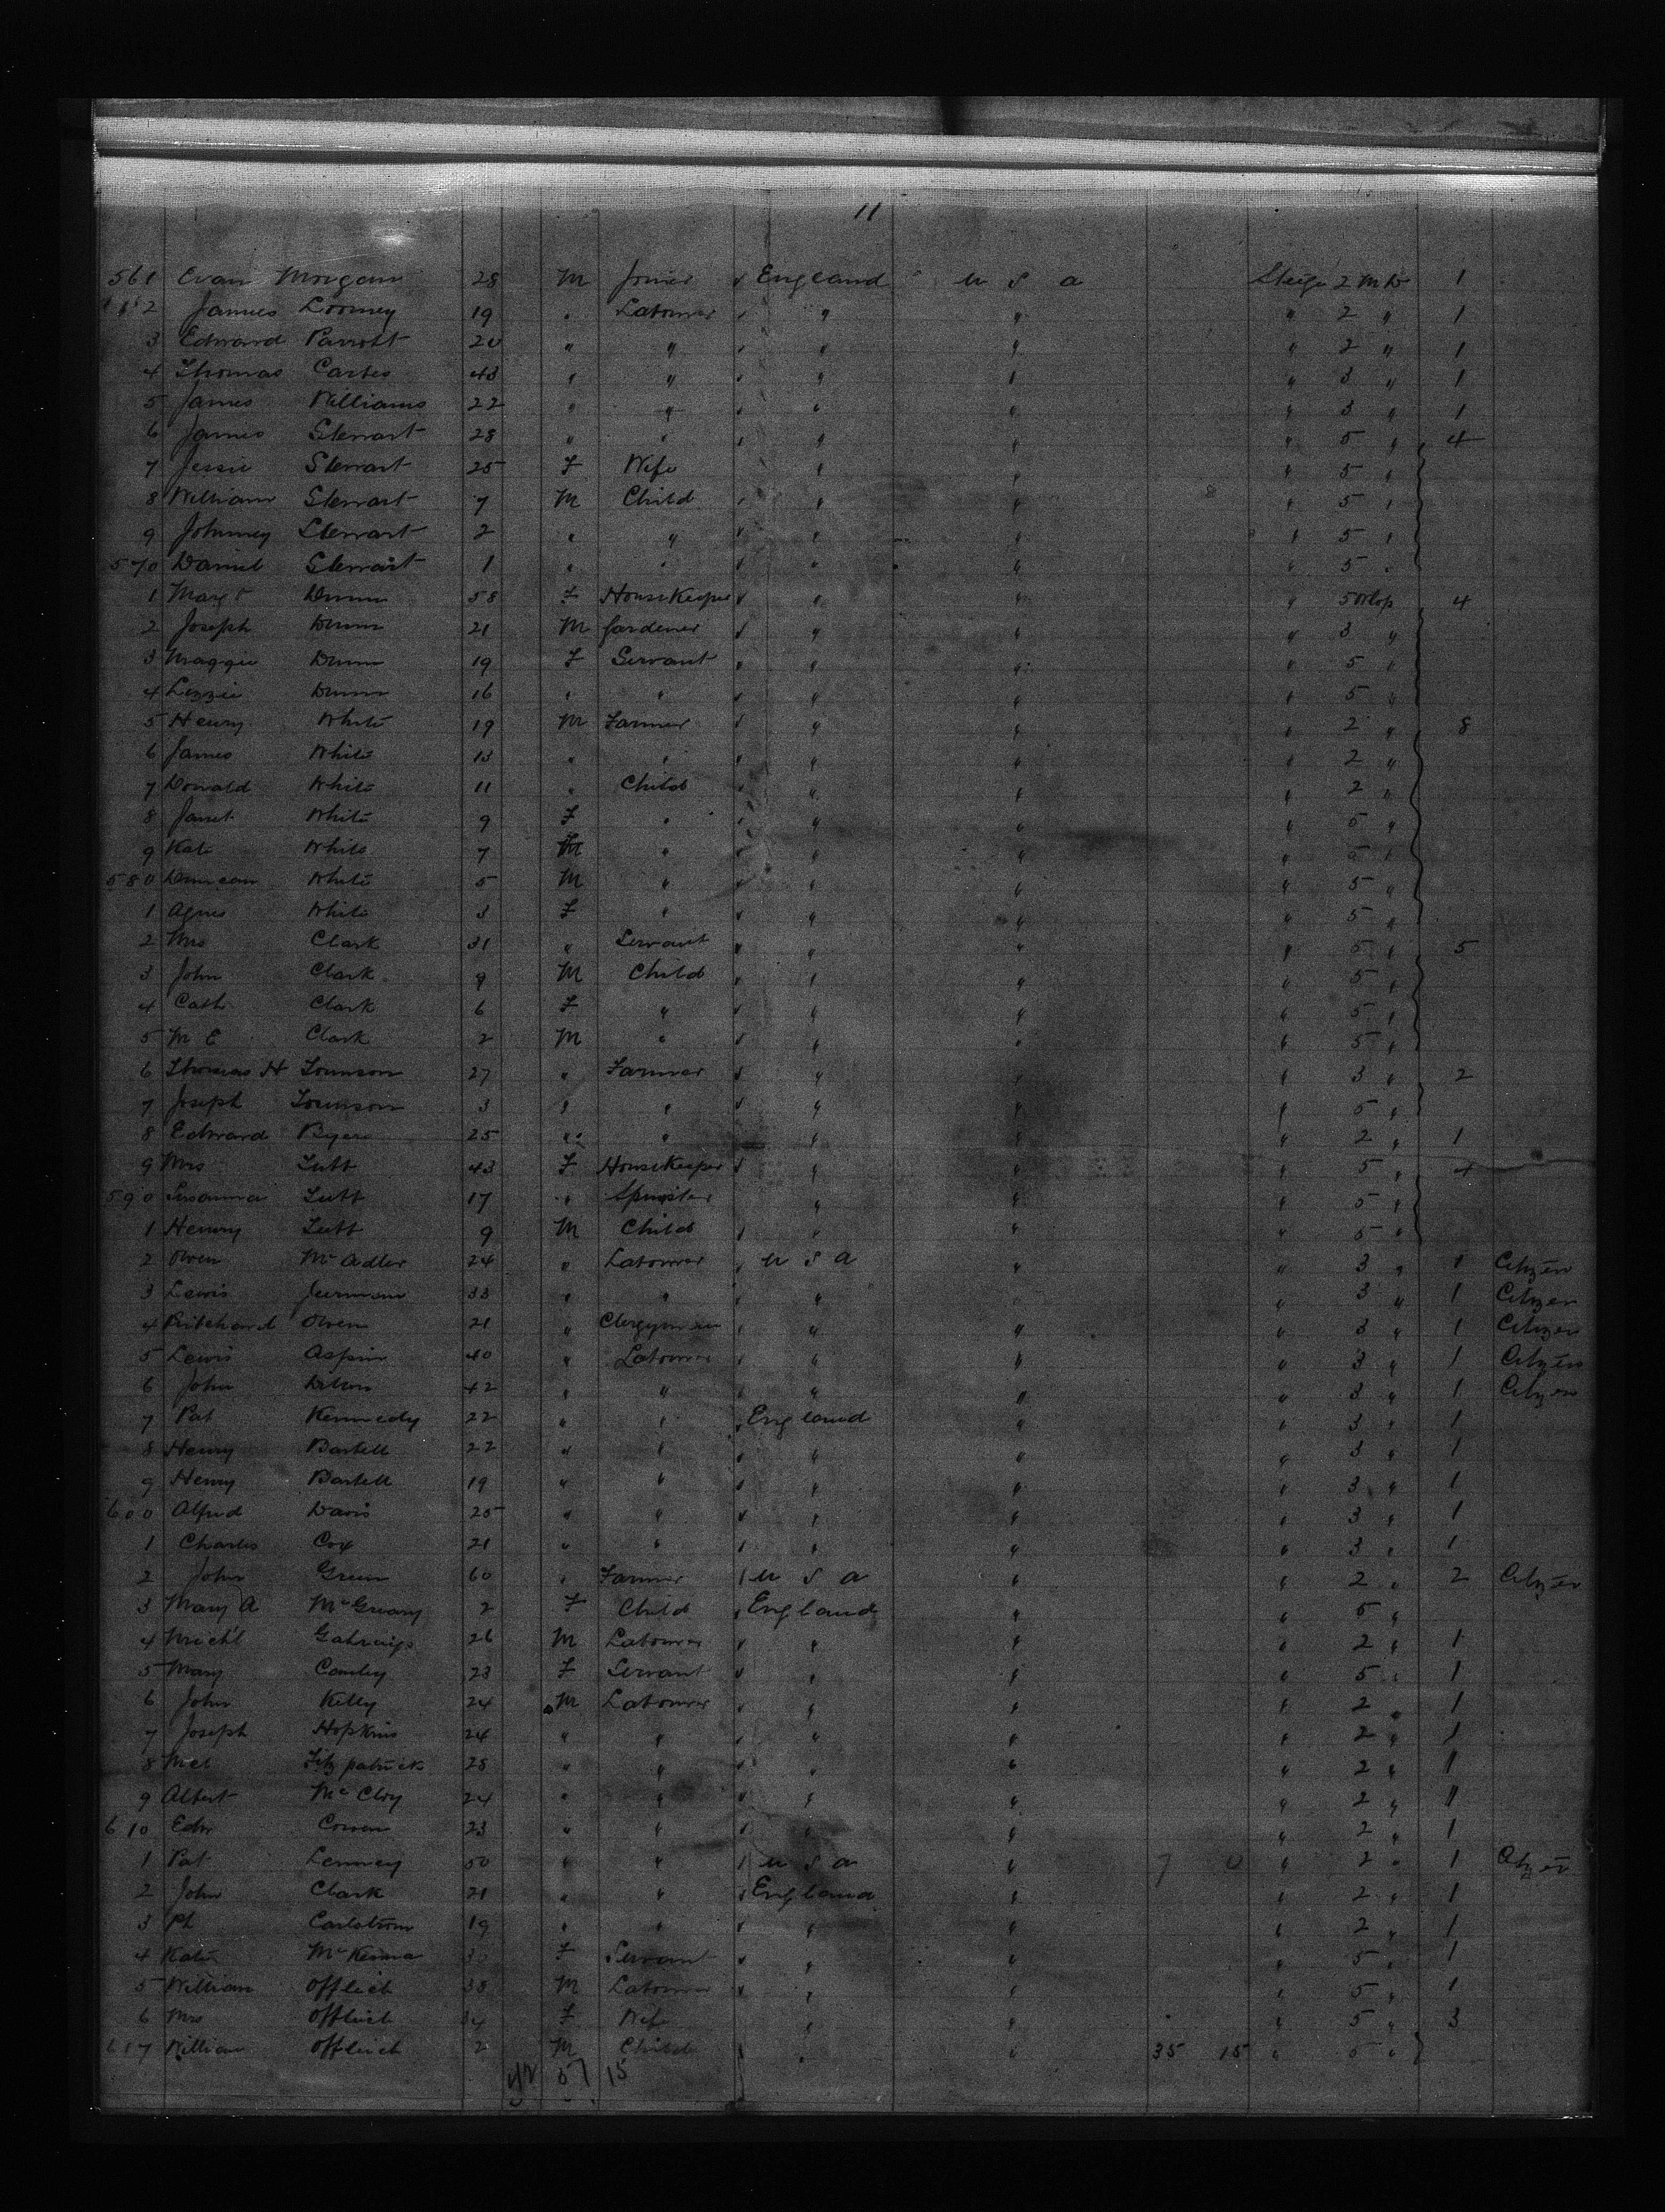 11
561 Evan Morgan 28 M Joiner England U S A Steige 2 M D 1
2 James Loomey 19 " Labourer " " " " 2 " 1
3 Edward Parrott 20 " " " " " 2 " 1
4 Thomas Carter 43 " " " " " 3 " 1
5 James Williams 22 " " " " " 3 " 1
6 James Stewart 28 " " " " " 5 " 4
7 Jessie Stewart 25 F Wife " " " 5 "
8 William Stewart 7 M Child " " " 5 "
9 Johnney Stewart 2 " " " " " 5 "
570 Daniel Stewart 1 " " " " " 5 "
1 Margt Dunn 58 F HouseKeeper " " " 5 Orlop 4
2 Joseph Dunn 21 M Gardener " " " 3 "
3 Maggie Dunn 19 F Servant " " " 5 "
4 Lizzie Dunn 16 " " " " " 5 "
5 Henry White 19 M Farmer " " " 2 " 8
6 James White 13 " " " " " 2 "
7 Donald White 11 " Child " " " 2 "
8 Janet White 9 F " " " " 5 "
9 Kate White 7 " " " " 5 "
580 Duncan White 5 M " " " " 5 "
1 Agnes White 3 F " " " " 5 "
2 Mrs Clark 31 " Servant " " " 5 " 5
3 John Clark 9 M Child " " " 5 "
4 Cath Clark 6 F " " " " 5 "
5 M E Clark 2 M " " " " 5 "
6 Thomas H Tounson 27 " Farmer " " " 3 " 2
7 Joseph Tounson 3 " " " " " 5 "
8 Edward Byers 25 " " " " " 2 " 1
9 Mrs Tutt 43 F HouseKeeper " " " 5 " 4
590 Susanna Tutt 17 " Spinster " " " 5 "
1 Henry Tutt 9 M Child " " " 5 "
2 Owen McAdler 24 " Labourer U S A " " 3 " 1 Citizen
3 Lewis Jurman 33 " " " " " 3 " 1 Citizen
4 Pritchard Owen 21 " Clergyman " " " 3 " 1 Citizen
5 Lewis Aspin 40 " Labourer " " " 3 " 1 Citizen
6 John 42 " " " " " 3 " 1 Citizen
7 Pat Kennedy 22 " " England " " 3 " 1
8 Henry Bartell 22 " " " " " 3 " 1
9 Henry Bartell 19 " " " " " 3 " 1
600 Alfred Davis 25 " " " " " 3 " 1
1 Charles Cox 21 " " " " " 3 " 1
2 John Green 60 " Farmer U S A " " 2 " 2 Citizen
3 Mary A McGreary 2 F Child England " " 5 "
4 Michl 26 M Labourer " " " 2 " 1
5 Mary Comley 23 F Servant " " " 5 " 1
6 John Kelly 24 M Labourer " " " 2 " 1
7 Joseph Hopkins 24 " " " " " 2 " 1
8 Mcl Fitzpatrick 28 " " " " " 2 " 1
9 Albert McCloy 24 " " " " " 2 " 1
610 Edw Cowen 23 " " " " " 2 " 1
1 Pat Lenney 50 " " U S A " 7 0 " 2 " 1 Citizen
2 John Clark 21 " " England " " 2 " 1
3 Ph Carlstrom 19 " " " " " 2 " 1
4 Kate McKenna F Servant " " " 5 " 1
5 William Offlich 38 M Labourer " " " 5 " 1
6 Mrs Offlich 34 F Wife " " " 5 " 3
617 William Offlich 2 M Child " " 35 15 " 5 "
42 57 15